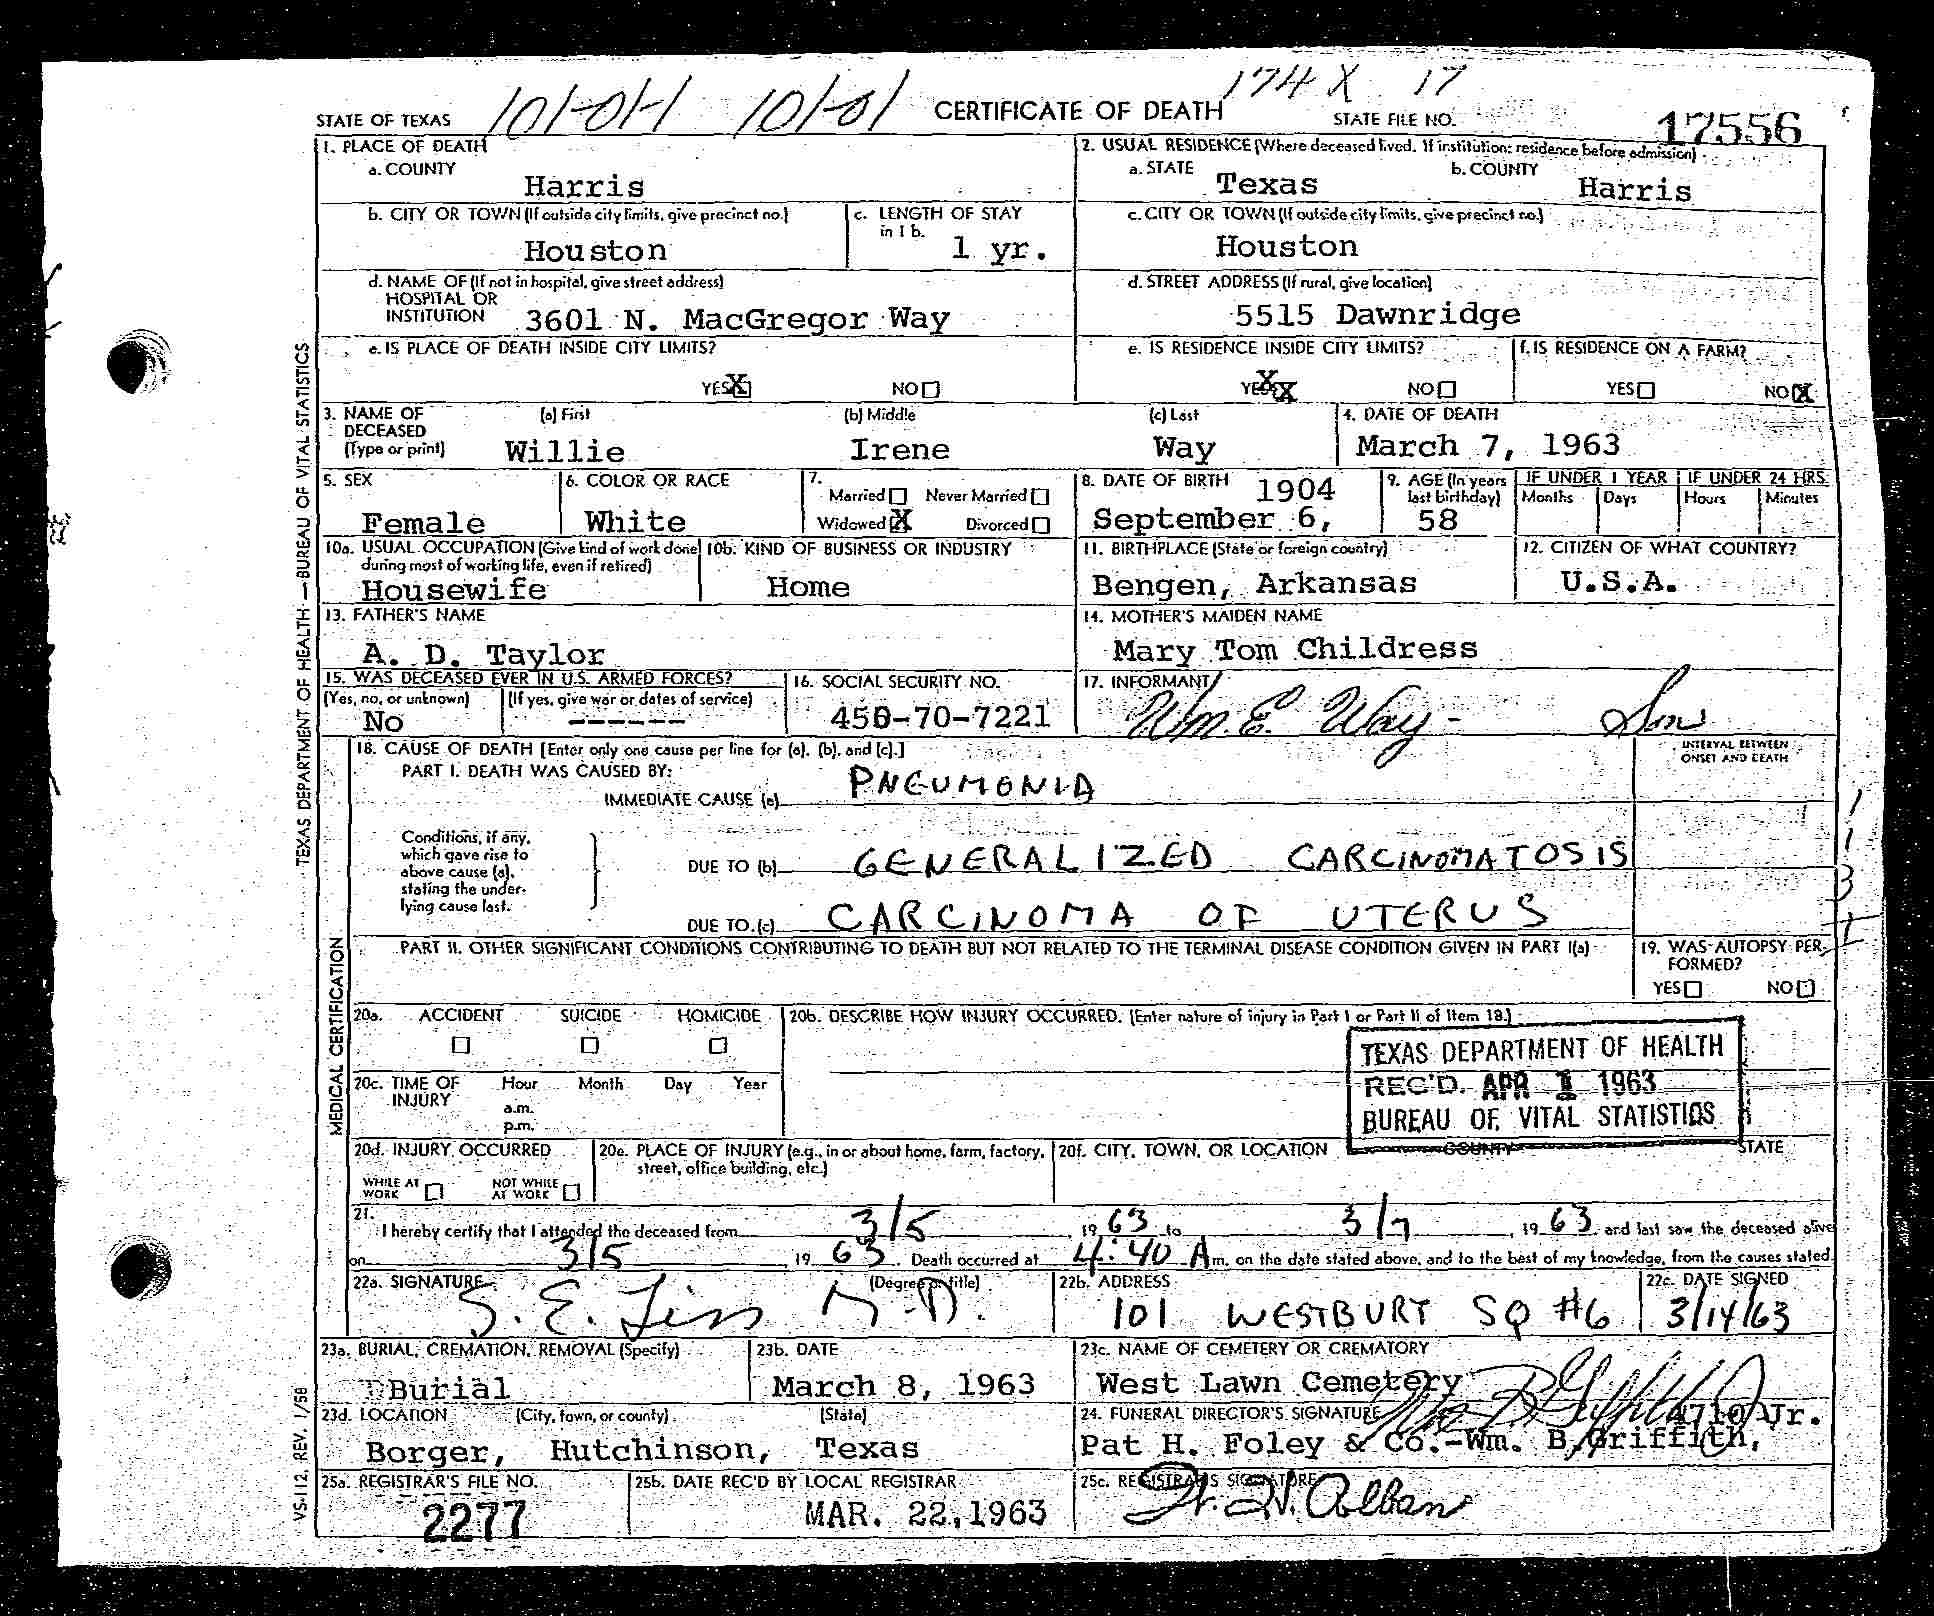 101-01-1 101-01 174 X 17
STATE OF TEXAS CERTIFICATE OF DEATH STATE FILE NO. 17556
1. PLACE OF DEATH
a. COUNTY
Harris
2. USUAL RESIDENCE (Where deceased lived. If institution: residence before admission)
a. STATE b. COUNTY
Texas Harris
b. CITY OR TOWN (If outside city limits, give precinct no.)
Houston
c. LENGTH OF STAY
in 1 b.
1 yr.
c. CITY OR TOWN (If outside city limits, give precinct no.)
Houston
d. NAME OF (If not in hospital, give street address)
HOSPITAL OR
INSTITUTION 3601 N. MacGregor Way
d. STREET ADDRESS (If rural, give location)
5515 Dawnridge
e. IS PLACE OF DEATH INSIDE CITY LIMITS?
YES X NO
e. IS RESIDENCE INSIDE CITY LIMITS?
YES X NO
f. IS RESIDENCE ON A FARM?
YES NO X
3. NAME OF
DECEASED
(Type or print)
(a) First (b) Middle (c) Last
Willie Irene Way
4. DATE OF DEATH
March 7, 1963
5. SEX
Female
6. COLOR OR RACE
White
7.
Married Never Married
Widowed X Divorced
8. DATE OF BIRTH 1904
September 6,
9. AGE (In years
last birthday)
58
IF UNDER 1 YEAR IF UNDER 24 HRS.
Months Days Hours Minutes
10a. USUAL OCCUPATION (Give kind of work done
during most of working life, even if retired)
Housewife
10b. KIND OF BUSINESS OR INDUSTRY
Home
11. BIRTHPLACE (State or foreign country)
Bengen, Arkansas
12. CITIZEN OF WHAT COUNTRY?
U.S.A.
13. FATHER'S NAME
A. D. Taylor
14. MOTHER'S MAIDEN NAME
Mary Tom Childress
15. WAS DECEASED EVER IN U.S. ARMED FORCES?
(Yes, no, or unknown) (If yes, give war or dates of service)
No ------
16. SOCIAL SECURITY NO.
450-70-7221
17. INFORMANT
Wm. E. Way - Son
18. CAUSE OF DEATH [Enter only one cause per line for (a), (b), and (c).]
PART I. DEATH WAS CAUSED BY:
IMMEDIATE CAUSE (a) PNEUMONIA
INTERVAL BETWEEN
ONSET AND DEATH
Conditions, if any,
which gave rise to
above cause (a),
stating the under-
lying cause last.
DUE TO (b) GENERALIZED CARCINOMATOSIS
DUE TO (c) CARCINOMA OF UTERUS
PART II. OTHER SIGNIFICANT CONDITIONS CONTRIBUTING TO DEATH BUT NOT RELATED TO THE TERMINAL DISEASE CONDITION GIVEN IN PART I(a)
19. WAS AUTOPSY PER-
FORMED?
YES NO
20a. ACCIDENT SUICIDE HOMICIDE
20b. DESCRIBE HOW INJURY OCCURRED. (Enter nature of injury in Part I or Part II of Item 18.)
TEXAS DEPARTMENT OF HEALTH
REC'D. APR 1 1963
BUREAU OF VITAL STATISTICS
20c. TIME OF
INJURY
Hour Month Day Year
a.m.
p.m.
20d. INJURY OCCURRED
WHILE AT
WORK
NOT WHILE
AT WORK
20e. PLACE OF INJURY (e.g., in or about home, farm, factory,
street, office building, etc.)
20f. CITY, TOWN, OR LOCATION COUNTY STATE
21.
I hereby certify that I attended the deceased from 3/5, 19 63 to 3/7, 19 63 and last saw the deceased alive
on 3/5, 19 63. Death occurred at 4:40 A m. on the date stated above, and to the best of my knowledge, from the causes stated.
22a. SIGNATURE (Degree or title)
S. E. M.D.
22b. ADDRESS
101 WESTBURY SQ #6
22c. DATE SIGNED
3/14/63
23a. BURIAL, CREMATION, REMOVAL (Specify)
Burial
23b. DATE
March 8, 1963
23c. NAME OF CEMETERY OR CREMATORY
West Lawn Cemetery
23d. LOCATION (City, town, or county) (State)
Borger, Hutchinson, Texas
24. FUNERAL DIRECTOR'S SIGNATURE
4710 Jr.
Pat H. Foley & Co.-Wm. B. Griffith,
25a. REGISTRAR'S FILE NO.
2277
25b. DATE REC'D BY LOCAL REGISTRAR
MAR. 22, 1963
25c. REGISTRAR'S SIGNATURE
TEXAS DEPARTMENT OF HEALTH — BUREAU OF VITAL STATISTICS
MEDICAL CERTIFICATION
VS-112, REV. 1/58